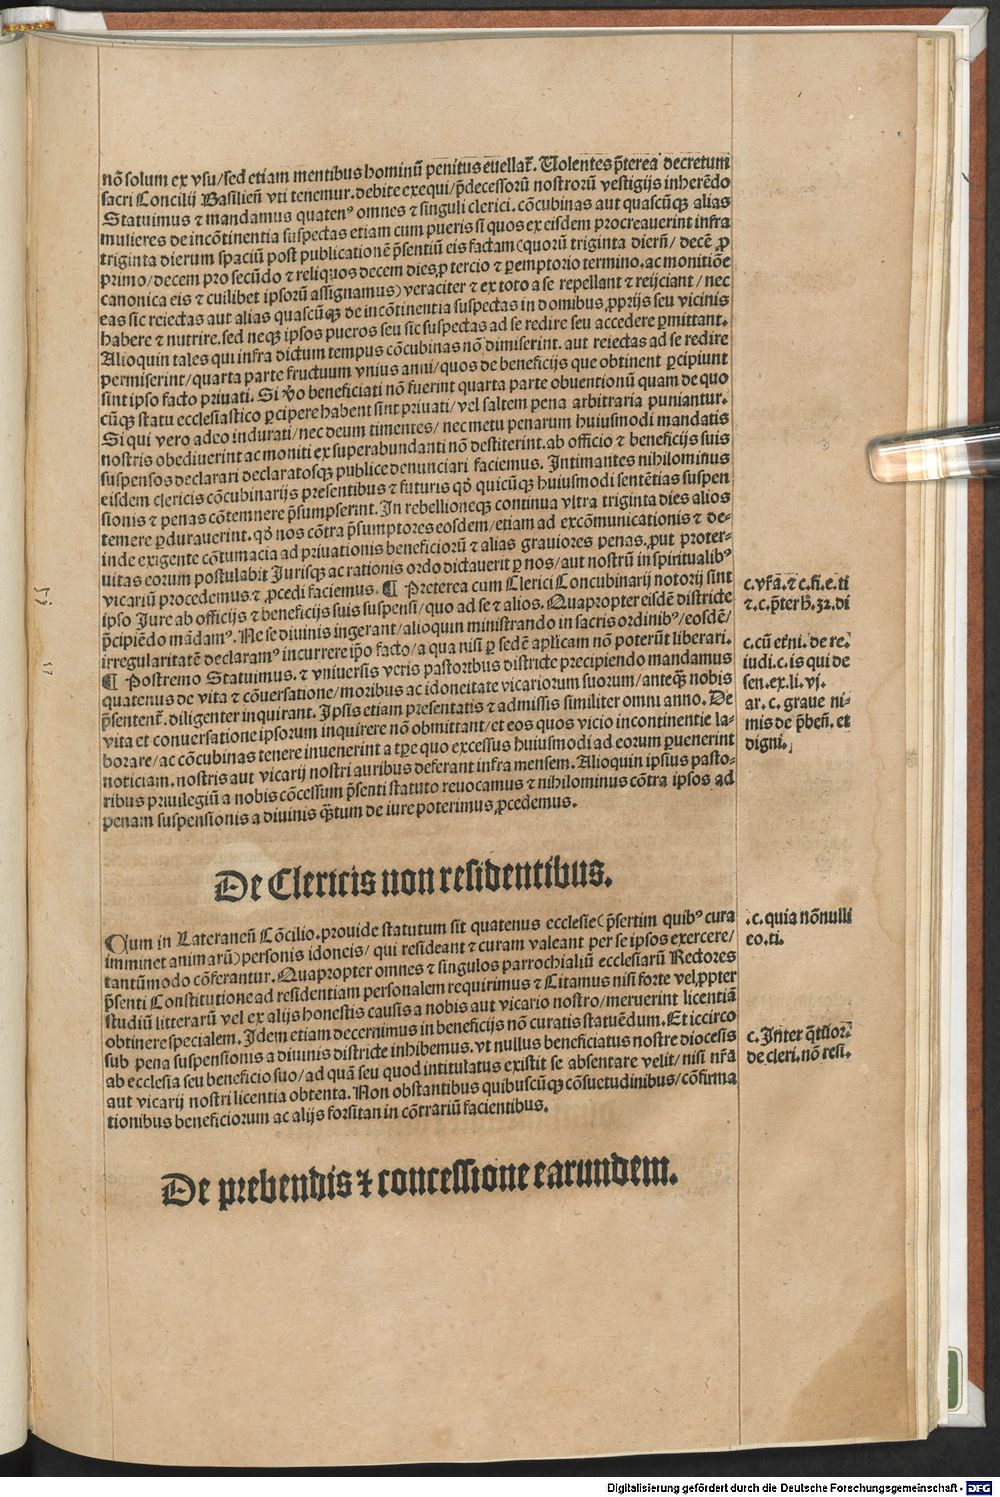 nõ solum ex vsu/sed etiam mentibus hominũ penitus euellat̃. Uolentes p̃terea decretum
sacri Concilij Basilieñ vti tenemur. debite exequi/p̃decessorũ nostrorũ vestigijs inherẽdo
Statuimus ⁊ mandamus quatenꝰ omnes ⁊ singuli clerici. cõcubinas aut quascũqꝫ alias
mulieres de incõtinentia suspectas etiam cum pueris si quos ex eisdem procreauerint infra
triginta dierum spaciũ post publicationẽ p̃sentiũ eis factam (quorũ triginta dierũ/ decẽ ꝓ
primo/decem pro secũdo ⁊ reliquos decem dies ꝓ tercio ⁊ ꝑemptorio termino. ac monitiõe
canonica eis ⁊ cuilibet ipsorũ assignamus) veraciter ⁊ ex toto a se repellant ⁊ reijciant/ nec
eas sic reiectas aut alias quascũqꝫ de incõtinentia suspectas in domibus ꝓprijs seu vicinis
habere ⁊ nutrire. sed neqꝫ ipsos pueros seu sic suspectas ad se redire seu accedere ꝑmittant.
Alioquin tales qui infra dictum tempus cõcubinas nõ dimiserint. aut reiectas ad se redire
permiserint/quarta parte fructuum vnius anni/quos de beneficijs que obtinent ꝑcipiunt
sint ipso facto priuati. Si ṽo beneficiati nõ fuerint quarta parte obuentionũ quam de quo
cũqꝫ statu ecclesiastico ꝑcipere habent sint priuati/vel saltem pena arbitraria puniantur.
Si qui vero adeo indurati/nec deum timentes/ nec metu penarum huiusmodi mandatis
nostris obediuerint ac moniti ex superabundanti nõ destiterint. ab officio ⁊ beneficijs suis
suspensos declarari declaratosqꝫ publice denunciari faciemus. Intimantes nihilominus
eisdem clericis cõcubinarijs presentibus ⁊ futuris qð quicũqꝫ huiusmodi sentẽtias suspen
sionis ⁊ penas cõtemnere p̃sumpserint. In rebellioneqꝫ continua vltra triginta dies alios
temere ꝑdurauerint. qð nos cõtra p̃sumptores eosdem/etiam ad excõmunicationis ⁊ de⸗
inde exigente cõtumacia ad priuationis beneficiorũ ⁊ alias grauiores penas. ꝓut proter⸗
uitas eorum postulabit Jurisqꝫ ac rationis ordo dictauerit ꝑ nos/aut nostrũ in spiritualibꝰ
vicariũ procedemus. ⁊ ꝓcedi faciemus. ¶ Preterea cum Clerici Concubinarij notorij sint
ipso Jure ab officijs ⁊ beneficijs suis suspensi/quo ad se ⁊ alios. Quapropter eisdẽ districte
p̃cipiẽdo mãdamꝰ. Ne se diuinis ingerant/alioquin ministrando in sacris ordinibꝰ/eosdẽ/
irregularitatẽ declaramꝰ incurrere ip̃o facto/a qua nisi ꝑ sedẽ aplicam nõ poterũt liberari.
¶ Postremo Statuimus. ⁊ vniuersis veris pastoribus districte precipiendo mandamus
quatenus de vita ⁊ cõuersatione/moribus ac idoneitate vicariorum suorum/anteqꝫ nobis
p̃sentent̃. diligenter inquirant. Ipsis etiam presentatis ⁊ admissis similiter omni anno. De
vita et conuersatione ipsorum inquirere nõ obmittant/et eos quos vicio incontinentie la⸗
borare/ac cõcubinas tenere inuenerint a tꝑe quo excessus huiusmodi ad eorum ꝑuenerint
noticiam. nostris aut vicarij nostri auribus deferant infra mensem. Alioquin ipsius pasto⸗
ribus priuilegiũ a nobis cõcessum p̃senti statuto reuocamus ⁊ nihilominus cõtra ipsos ad
penam suspensionis a diuinis qꝫtum de iure poterimus ꝓcedemus.
c. vr̃a. ⁊ c. fi. e. ti
⁊. c. p̃ter h̃. 32. di
c. cũ et̃ni. de re.
iudi. c. is qui de
sen. ex. li. vj.
ar. c. graue ni⸗
mis de p̃beñ. et
digni.
De Clericis non residentibus.
Cum in Lateraneñ Cõcilio. prouide statutum sit quatenus ecclesie (p̃sertim quibꝰ cura
imminet animarũ) personis idoneis/ qui resideant ⁊ curam valeant per se ipsos exercere/
tantũmodo cõferantur. Quapropter omnes ⁊ singulos parrochialiũ ecclesiarũ Rectores
p̃senti Constitutione ad residentiam personalem requirimus ⁊ Citamus nisi forte vel ꝓpter
studiũ litterarũ vel ex alijs honestis causis a nobis aut vicario nostro/meruerint licentiã
obtinere specialem. Idem etiam decernimus in beneficijs nõ curatis statuẽdum. Et iccirco
sub pena suspensionis a diuinis districte inhibemus. vt nullus beneficiatus nostre diocesis
ab ecclesia seu beneficio suo/ad quã seu quod intitulatus existit se absentare velit/nisi nr̃a
aut vicarij nostri licentia obtenta. Non obstantibus quibuscũqꝫ cõsuetudinibus/cõfirma
tionibus beneficiorum ac alijs forsitan in cõtrariũ facientibus.
.c. quia nõnulli
eo. ti.
c. Inter q̃tuor.
de cleri. nõ resi.
De prebendis ⁊ concessione earundem.
Digitalisierung gefördert durch die Deutsche Forschungsgemeinschaft - DFG